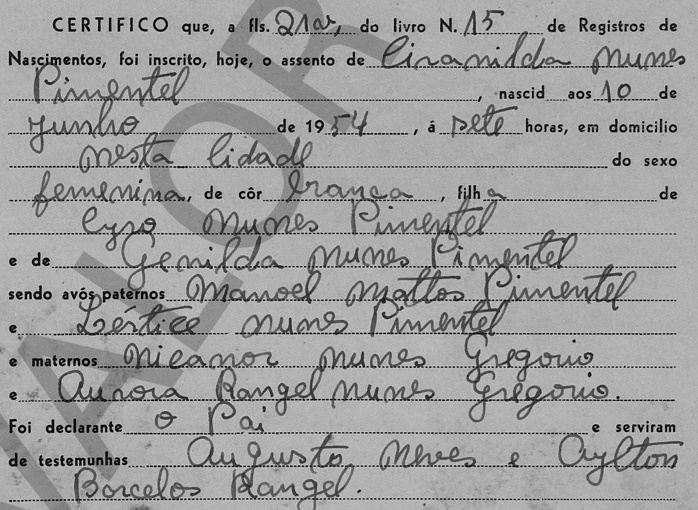 CERTIFICO que, a fls. 21av, do livro N. 15 de Registros de
Nascimentos, foi inscrito, hoje, o assento de Ciranilda Nunes
Pimentel, nascid aos 10 de
Junho de 1954, á sete horas, em domicilio
nesta Cidade do sexo
femenina, de côr branca, filha de
Cyro Nunes Pimentel
e de Genilda Nunes Pimentel
sendo avós paternos Manoel Mattos Pimentel
e Nunes Pimentel
e maternos Nicanor Nunes Gregorio
e Aurora Rangel Nunes Gregorio.
Foi declarante O Pai e serviram
de testemunhas Augusto Neves e Aylton
Barcelos Rangel.
VALOR